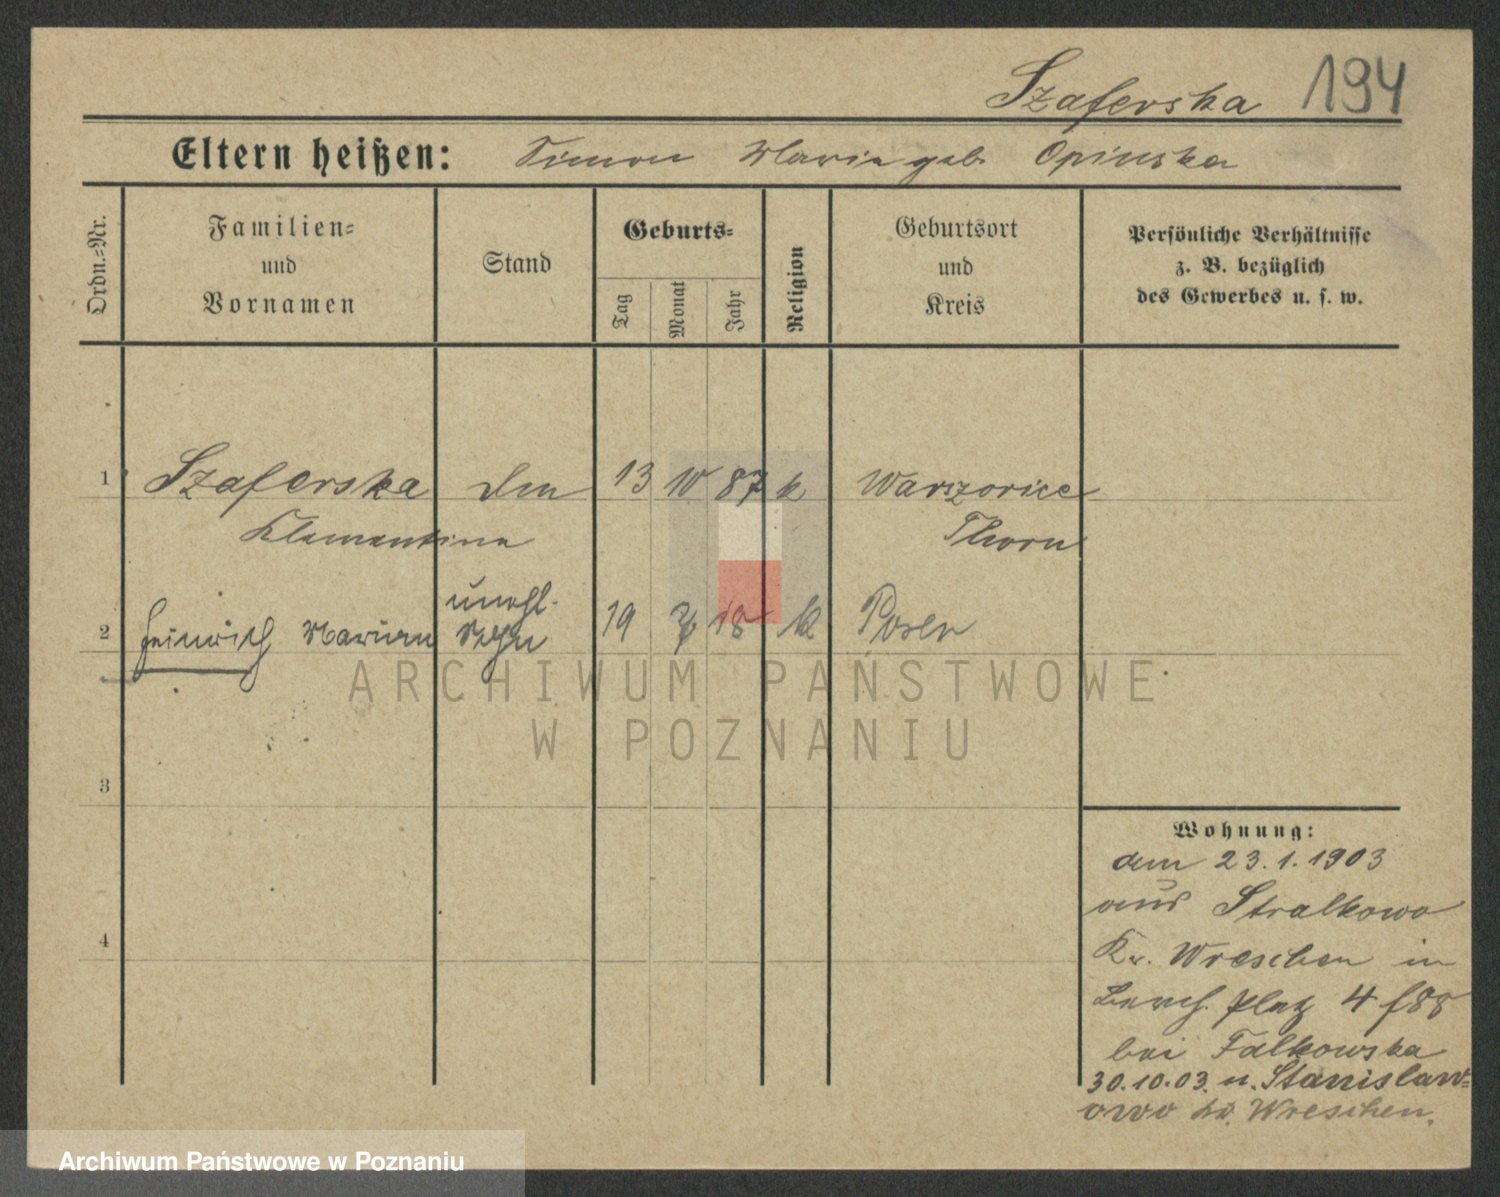 Szaferska 194
Eltern heißen: Simon Maria geb. Opinska
Ordn.-Nr.
Familien-
und
Vornamen
Stand
Geburts-
Tag
Monat
Jahr
Religion
Geburtsort
und
Kreis
Persönliche Verhältnisse
z. B. bezüglich
des Gewerbes u. s. w.
1 Szaferska 13 10 87 k Warszorice
Klementine Thorn
unehl.
2 Heinrich Marian Sohn 19 7 18 k Posen
3
4
Wohnung:
dem 23.1.1903
aus Stralkowo
Kr. Wreschen in
Platz 4
bei Falkowska
30.10.03. n. Stanislaw=
owo Kr. Wreschen.
ARCHIWUM PAŃSTWOWE
W POZNANIU
Archiwum Państwowe w Poznaniu